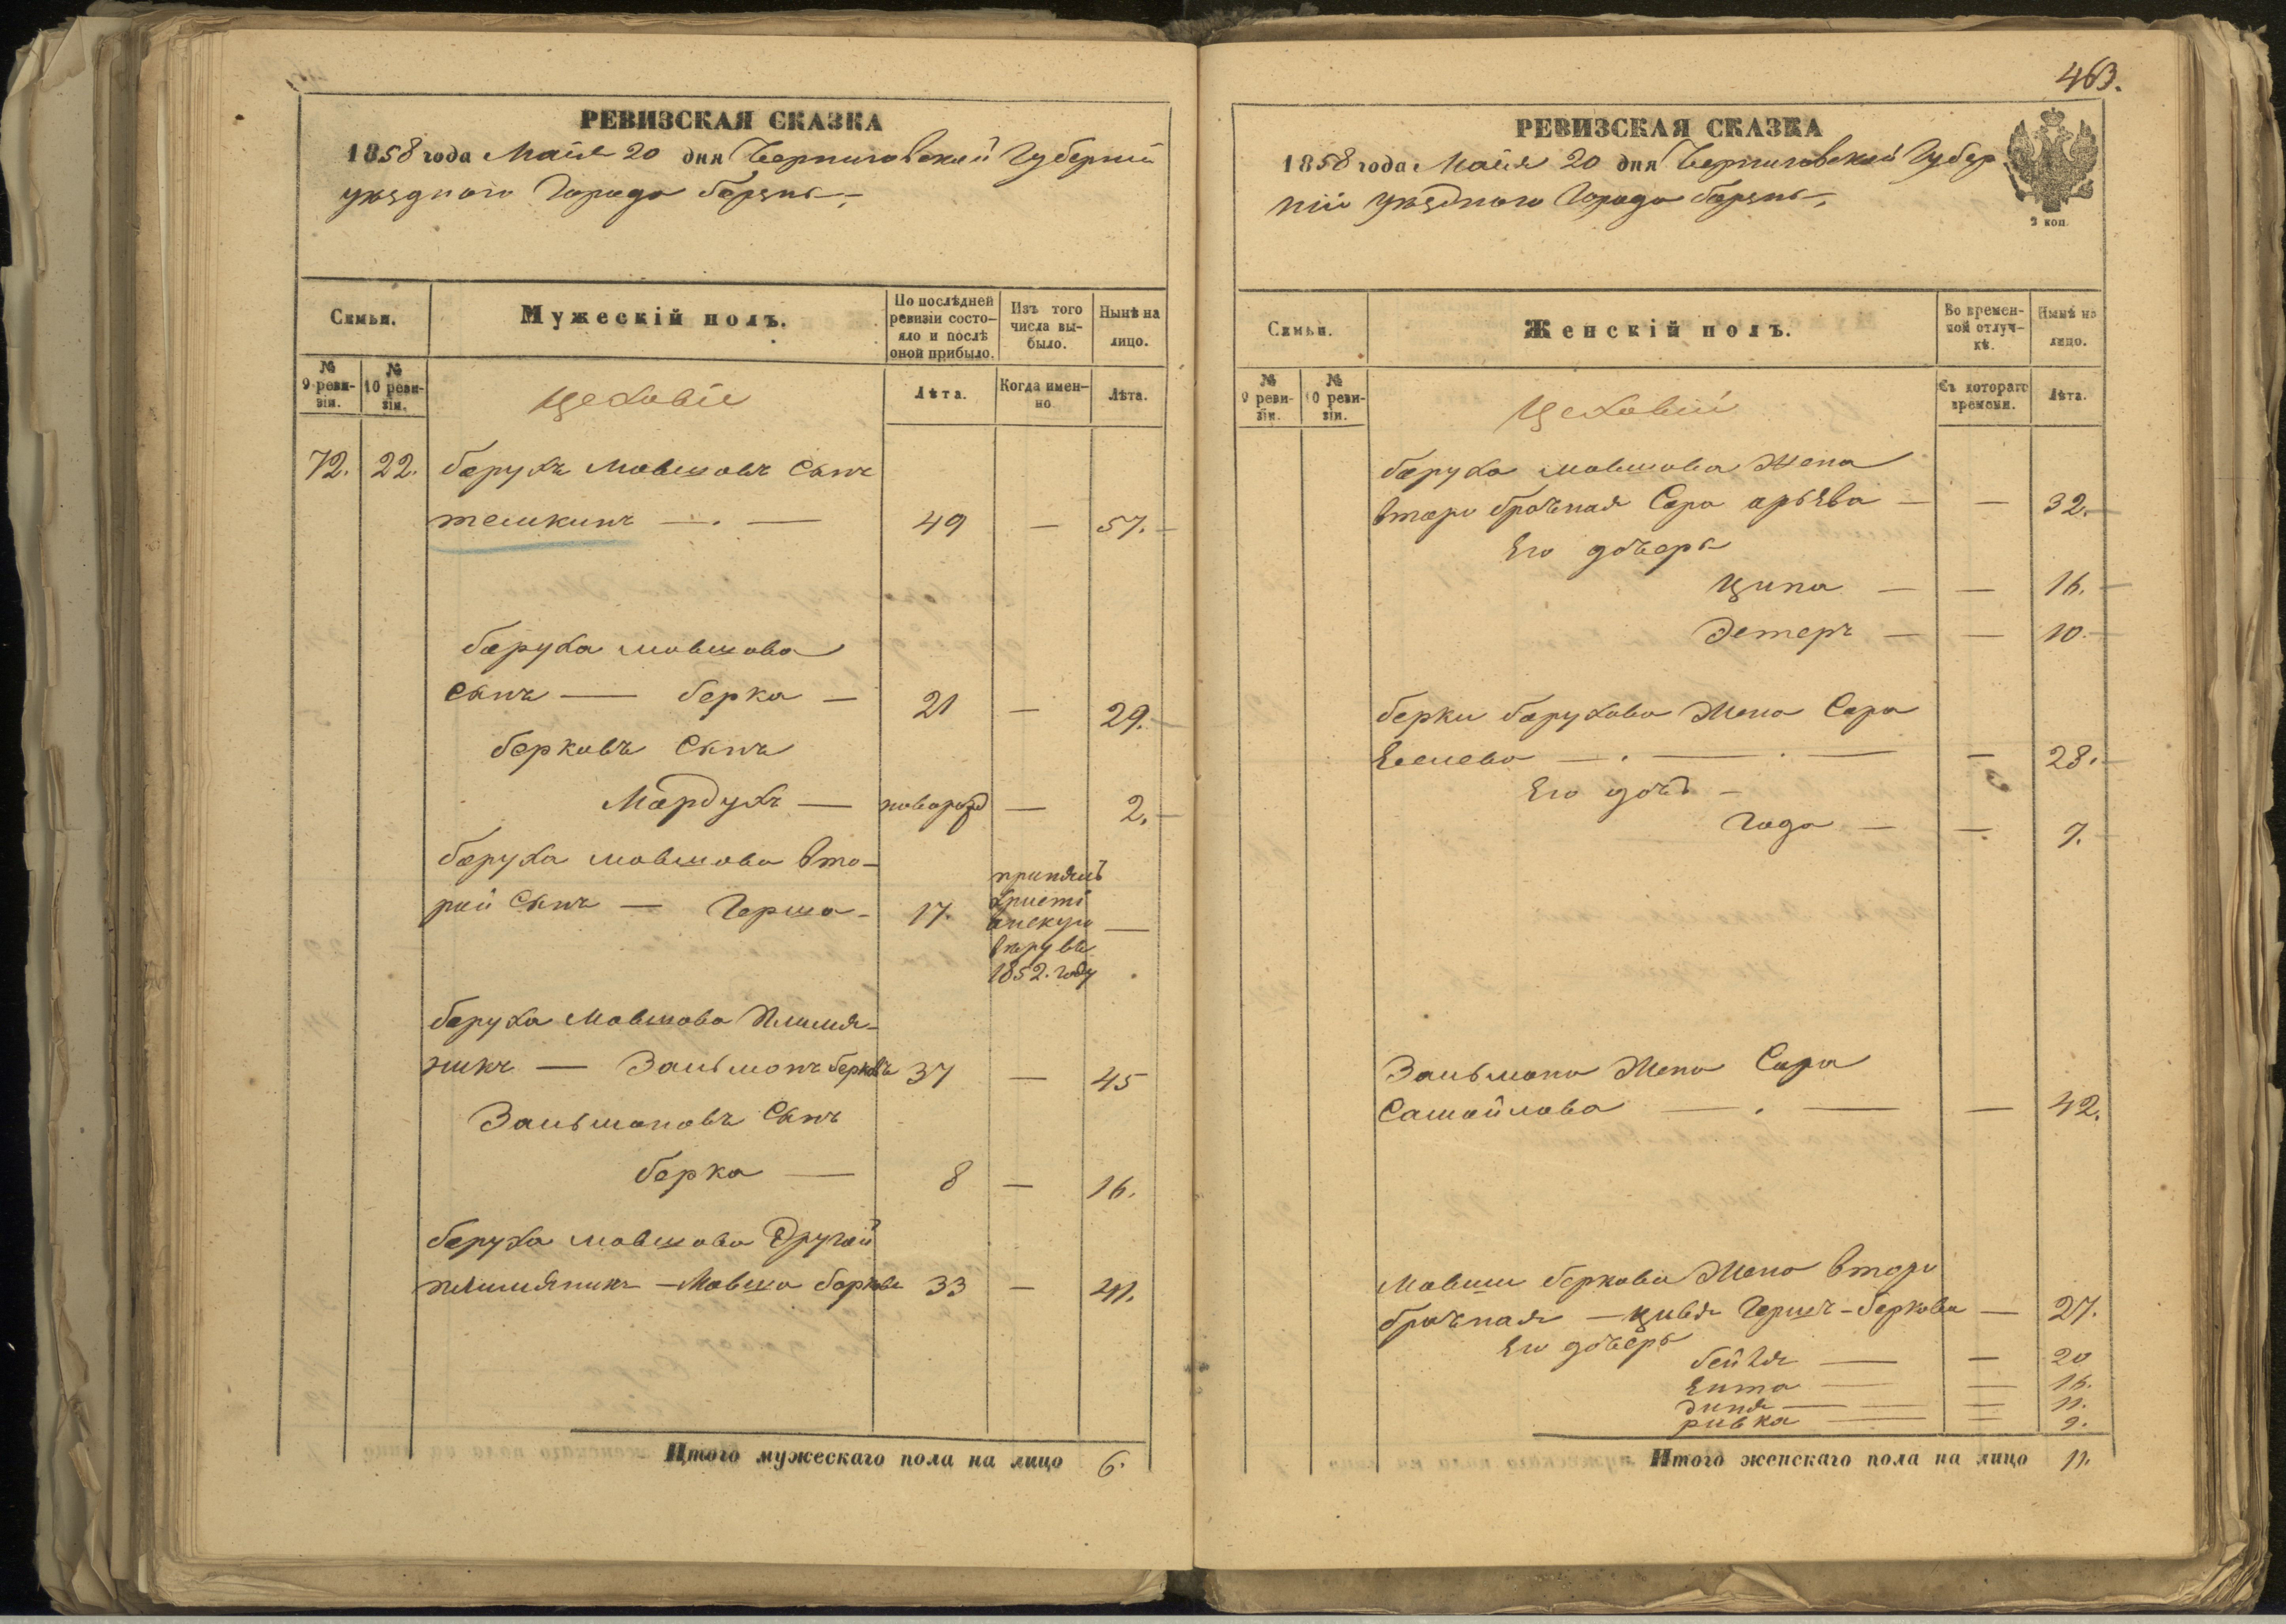 РЕВИЗСКАЯ СКАЗКА
1858 года Майя 20 дня Черниговской Губерніи
уѣзднаго Города борзны
Семьи.
Мужескій полъ.
По послѣдней ревизіи состояло и послѣ оной прибыло.
Изъ того числа выбыло.
Нынѣ на лицо.
№ 9 ревизіи.
№ 10 ревизіи.
цеховіе
Лѣта.
Когда именно
Лѣта.
72. 22. барухъ Мовшовъ Сынъ
темкинъ — . — 49 — 57. —
баруха мовшова
Сынъ — берка — 21 — 29. —
берковъ Сынъ
Мордухъ — новорозд — 2. —
баруха мовшова вто-
рой Сынъ — Герша - 17.
принялъ
христі
анскую —
вѣру въ
1852. году
баруха Мовшова Племя-
никъ — Зальмонъ берковъ 37 — 45
Зальмоновъ Сынъ
берка — 8 — 16.
баруха мовшова Другой
племяникъ — Мовша берковъ 33 — 41.
Итого мужескаго пола на лицо 6.
463.
РЕВИЗСКАЯ СКАЗКА
1858 года Майя 20 дня Черниговской Губер
ніи уѣзднаго Города борзны
2 коп.
Семьи.
Женскій полъ.
Во временной отлучкѣ.
Нынѣ на лицо.
№ 9 ревизіи.
№ 10 ревизіи.
цеховій
Съ котораго времени.
Лѣта.
баруха мовшова Жена
второ брочная Сора арьева — — 32. —
Его дочеръ
ципа — — 16. —
Эстеръ — — 10. —
берки барухова Жена Сора
— . — . — — 28. —
Его дочъ —
Года — — 7. —
Зальмона Жена Сора
Самойлова — . — — 42.
Мовши беркова Жена второ
брочная — цивія Гершъ-беркова — 27.
Его дочеръ
бейля — — 20
Ента — — 16.
диня — — 11.
ривка — — 9.
Итого женскаго пола на лицо 11.